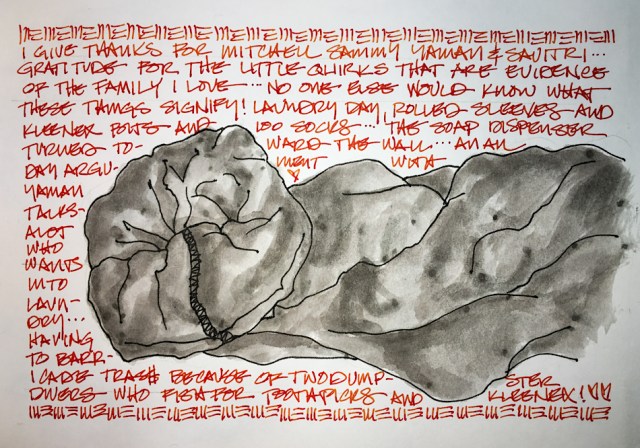 I GIVE THANKS FOR MITCHELL SAMMY YAMAN & SAVITRI...
GRATITUDE FOR THE LITTLE QUIRKS THAT ARE EVIDENCE
OF THE FAMILY I LOVE... NO ONE ELSE WOULD KNOW WHAT
THESE THINGS SIGNIFY! LAUNDRY DAY, ROLLED SLEEVES AND
KLEENEX AND 100 SOCKS... THE SOAP DISPENSER
TURNED TO- WARD THE WALL... AN ALL
DAY ARGU- MENT WITH
YAMAN
TALKS-
ALOT
WHO
WANTS
INTO
LAUN-
DRY...
HAVING
TO BARR-
ICADE TRASH BECAUSE OF TWO DUMP- STER
DIVERS WHO FISH FOR TOOTHPICKS AND KLEENEX!